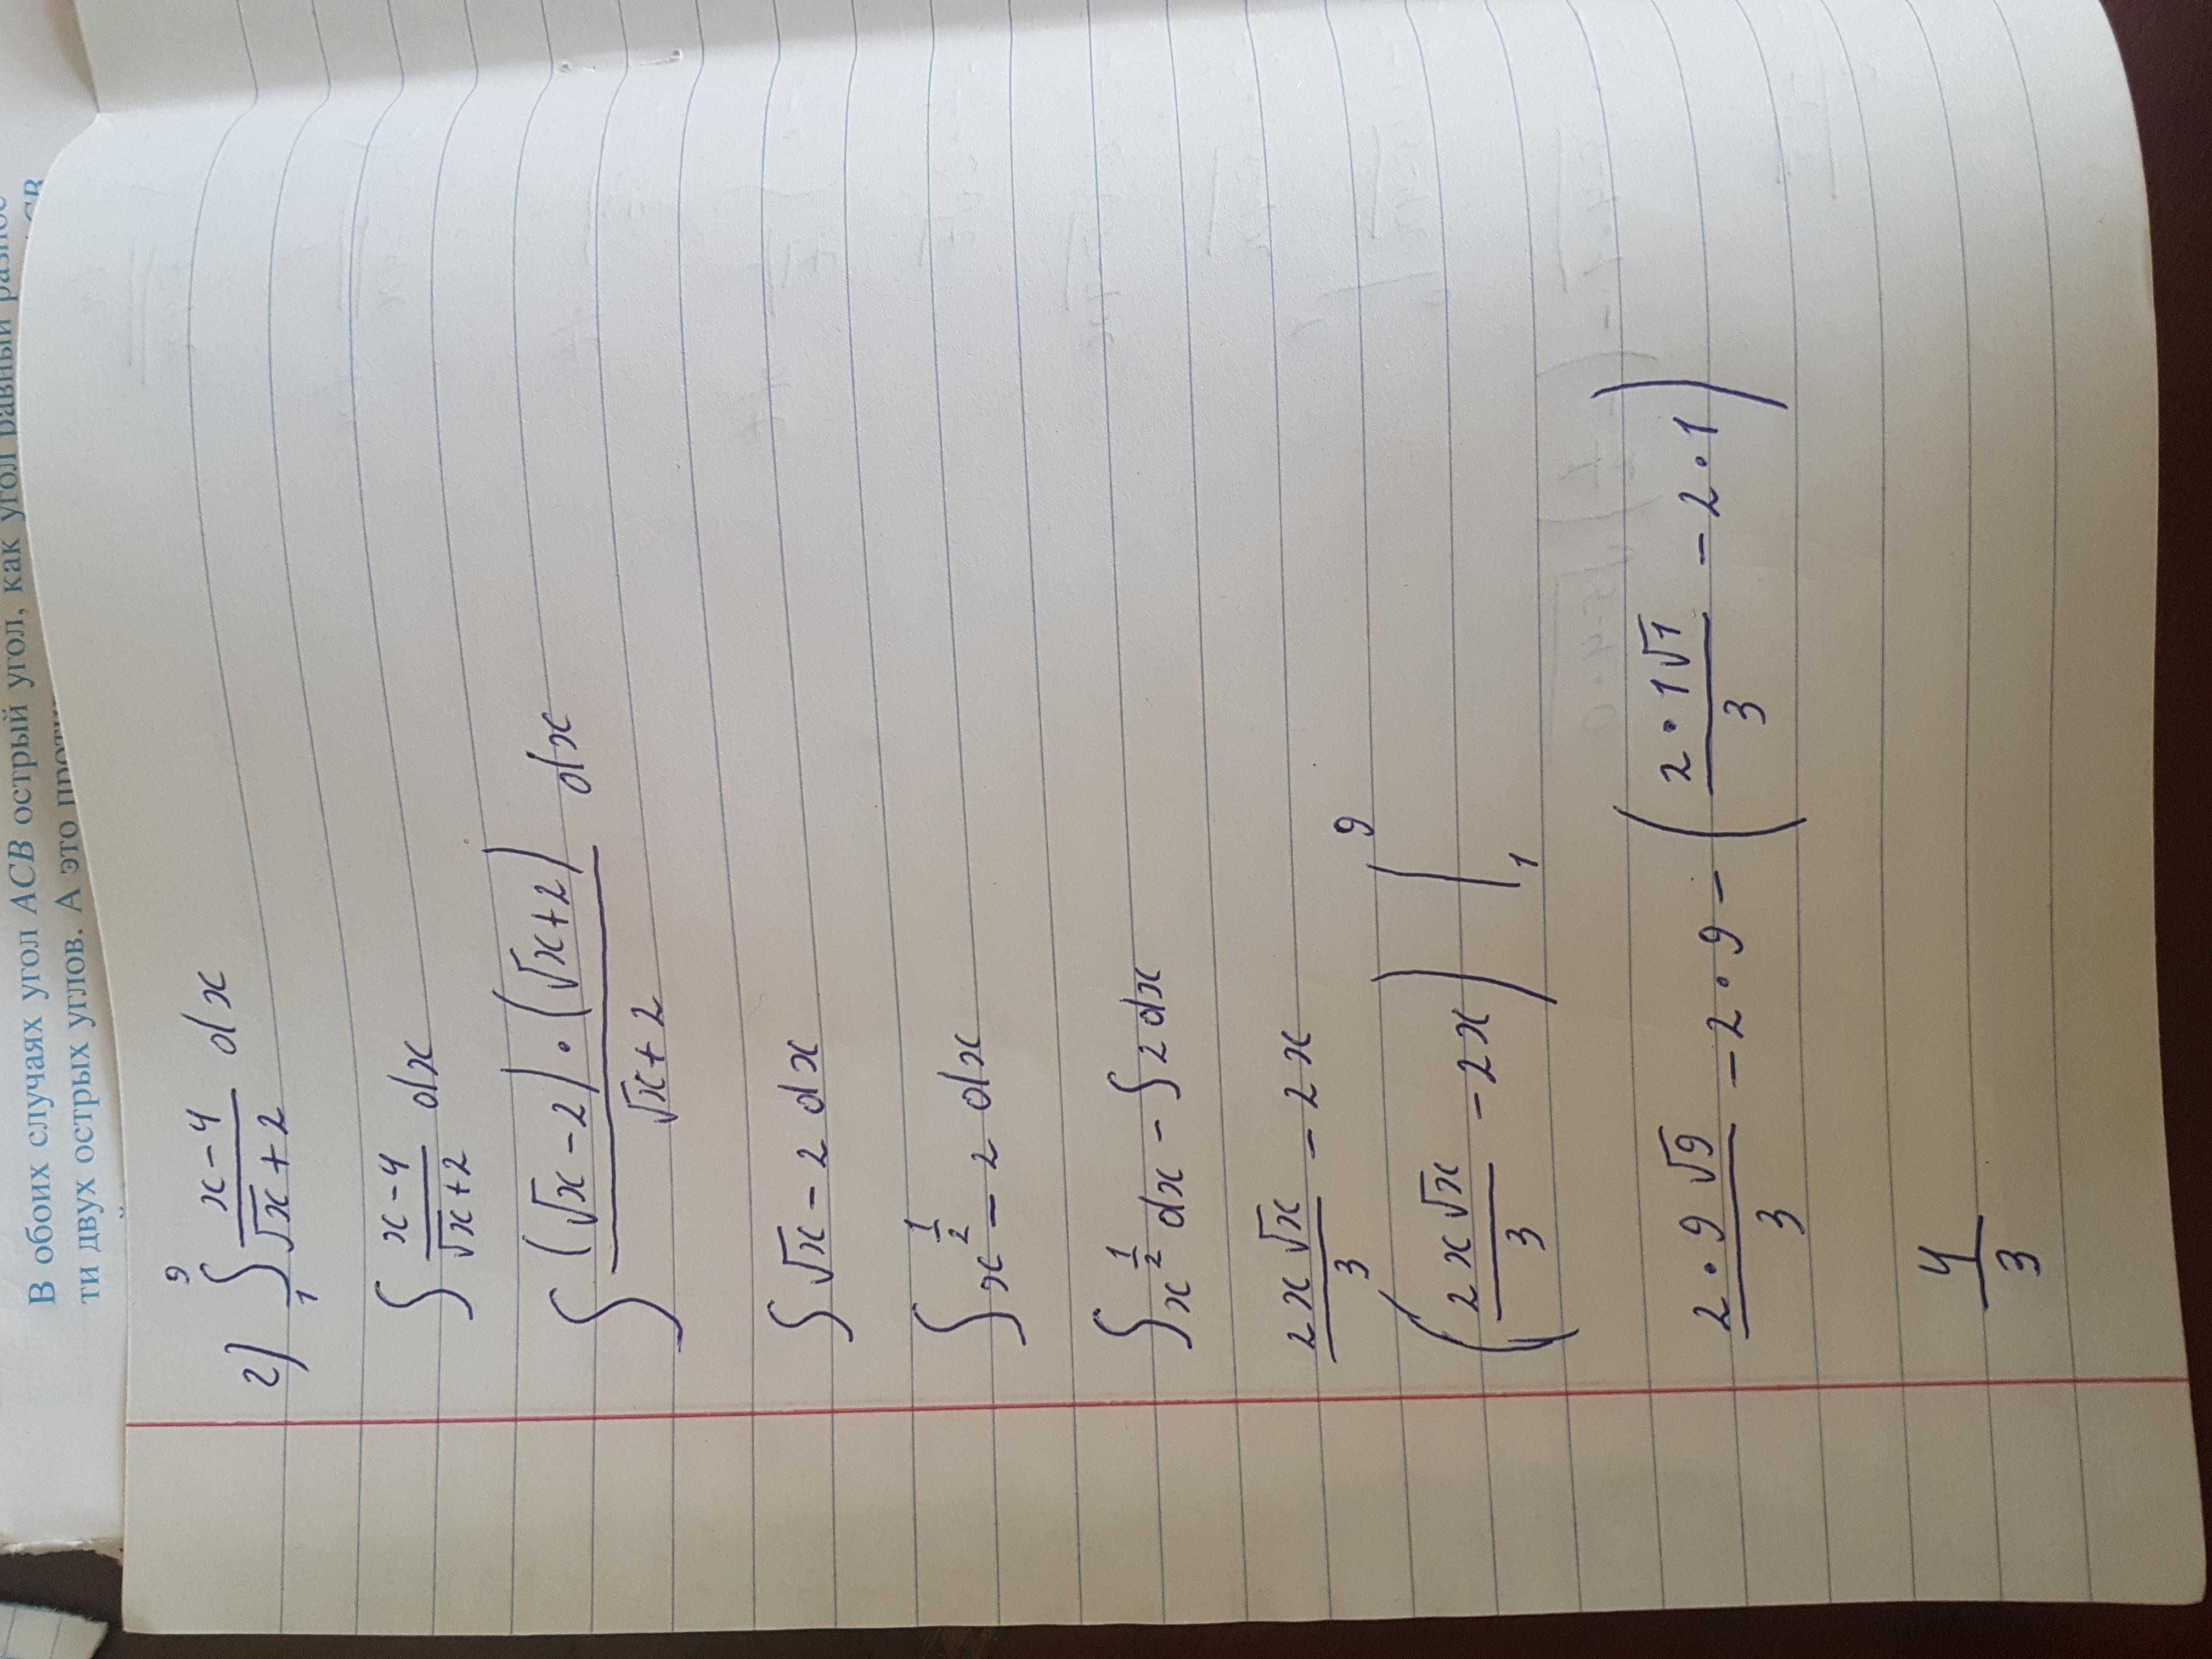 В обоих случаях угол ACB острый угол, как угол равный
ти двух острых углов. А это
2) ∫₁⁹ (x-4)/(√x+2) dx
∫ (x-4)/(√x+2) dx
∫ ((√x-2)·(√x+2))/(√x+2) dx
∫ √x-2 dx
∫ x^(1/2) - 2 dx
∫ x^(1/2) dx - ∫ 2 dx
(2x√x)/3 - 2x
((2x√x)/3 - 2x) |₁⁹
(2·9√9)/3 - 2·9 - ((2·1√1)/3 - 2·1)
4/3